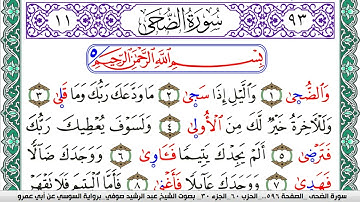 ١١ سُورَةُ الضُّحَىٰ ٩٣
بِسْمِ اللَّهِ الرَّحْمَٰنِ الرَّحِيمِ
وَالضُّحَىٰ ١ وَالَّيْلِ إِذَا سَجَىٰ ٢ مَا وَدَّعَكَ رَبُّكَ وَمَا قَلَىٰ ٣
وَلَلْآخِرَةُ خَيْرٌ لَّكَ مِنَ الْأُولَىٰ ٤ وَلَسَوْفَ يُعْطِيكَ رَبُّكَ
فَتَرْضَىٰ ٥ أَلَمْ يَجِدْكَ يَتِيمًا فَـَٔاوَىٰ ٦ وَوَجَدَكَ ضَالًّا
فَهَدَىٰ ٧ وَوَجَدَكَ عَآئِلًا فَأَغْنَىٰ ٨ فَأَمَّا الْيَتِيمَ فَلَا تَقْهَرْ
سورة الضحى - الصفحة ٥٩٦ - الحزب ٦٠ - الجزء ٣٠ - بصوت الشيخ عبد الرشيد صوفي - برواية السوسي عن أبي عمرو